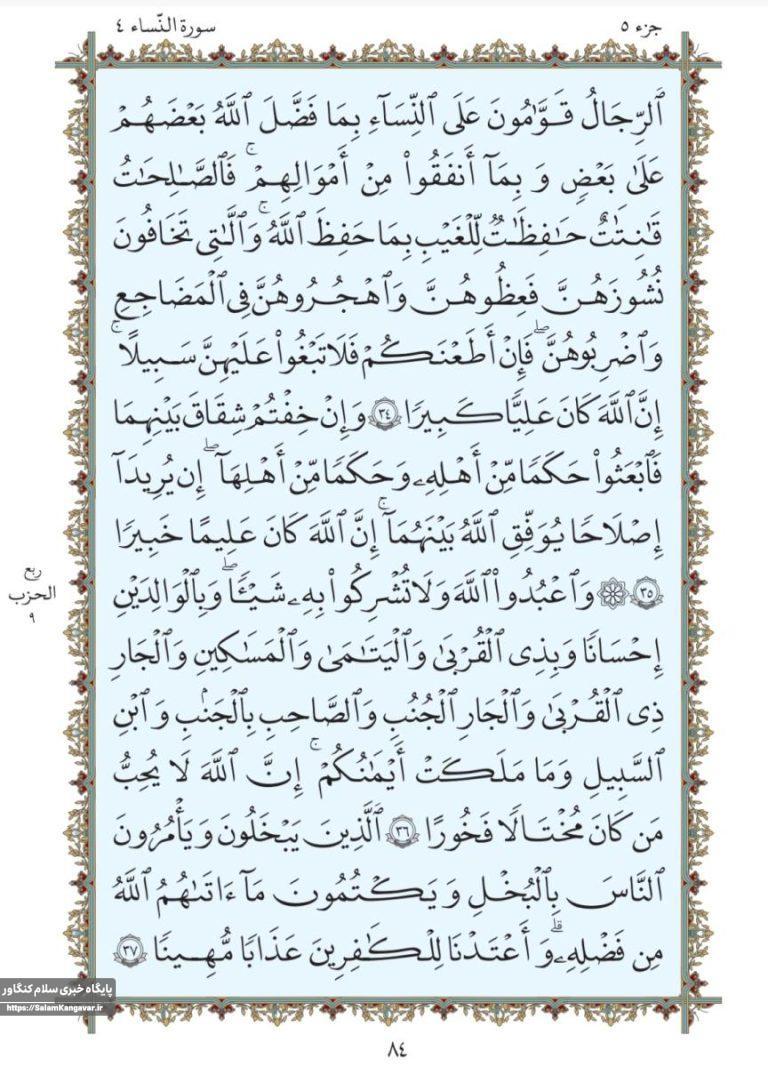 جزء ٥
سورة النّساء ٤
ٱلرِّجَالُ قَوَّٰمُونَ عَلَى ٱلنِّسَآءِ بِمَا فَضَّلَ ٱللَّهُ بَعْضَهُمْ
عَلَىٰ بَعْضٍ وَ بِمَآ أَنفَقُوا۟ مِنْ أَمْوَالِهِمْ ۚ فَٱلصَّـٰلِحَـٰتُ
قَـٰنِتَـٰتٌ حَـٰفِظَـٰتٌ لِّلْغَيْبِ بِمَا حَفِظَ ٱللَّهُ ۚ وَٱلَّـٰتِى تَخَافُونَ
نُشُوزَهُنَّ فَعِظُوهُنَّ وَٱهْجُرُوهُنَّ فِى ٱلْمَضَاجِعِ
وَٱضْرِبُوهُنَّ ۖ فَإِنْ أَطَعْنَكُمْ فَلَا تَبْغُوا۟ عَلَيْهِنَّ سَبِيلًا ۗ
إِنَّ ٱللَّهَ كَانَ عَلِيًّا كَبِيرًا ٣٤ وَإِنْ خِفْتُمْ شِقَاقَ بَيْنِهِمَا
فَٱبْعَثُوا۟ حَكَمًا مِّنْ أَهْلِهِۦ وَحَكَمًا مِّنْ أَهْلِهَآ ۖ إِن يُرِيدَآ
إِصْلَاحًا يُوَفِّقِ ٱللَّهُ بَيْنَهُمَآ ۚ إِنَّ ٱللَّهَ كَانَ عَلِيمًا خَبِيرًا
٣٥ وَٱعْبُدُوا۟ ٱللَّهَ وَلَا تُشْرِكُوا۟ بِهِۦ شَيْـًٔا ۖ وَبِٱلْوَالِدَيْنِ
إِحْسَانًا وَبِذِى ٱلْقُرْبَىٰ وَٱلْيَتَـٰمَىٰ وَٱلْمَسَـٰكِينِ وَٱلْجَارِ
ذِى ٱلْقُرْبَىٰ وَٱلْجَارِ ٱلْجُنُبِ وَٱلصَّاحِبِ بِٱلْجَنۢبِ وَٱبْنِ
ٱلسَّبِيلِ وَمَا مَلَكَتْ أَيْمَـٰنُكُمْ ۚ إِنَّ ٱللَّهَ لَا يُحِبُّ
مَن كَانَ مُخْتَالًا فَخُورًا ٣٦ ٱلَّذِينَ يَبْخَلُونَ وَيَأْمُرُونَ
ٱلنَّاسَ بِٱلْبُخْلِ وَيَكْتُمُونَ مَآ ءَاتَىٰهُمُ ٱللَّهُ
مِن فَضْلِهِۦ ۗ وَأَعْتَدْنَا لِلْكَـٰفِرِينَ عَذَابًا مُّهِينًا ٣٧
ربع
الحزب
٩
پایگاه خبری سلام کنگاور
https://SalamKangavar.ir
٨٤